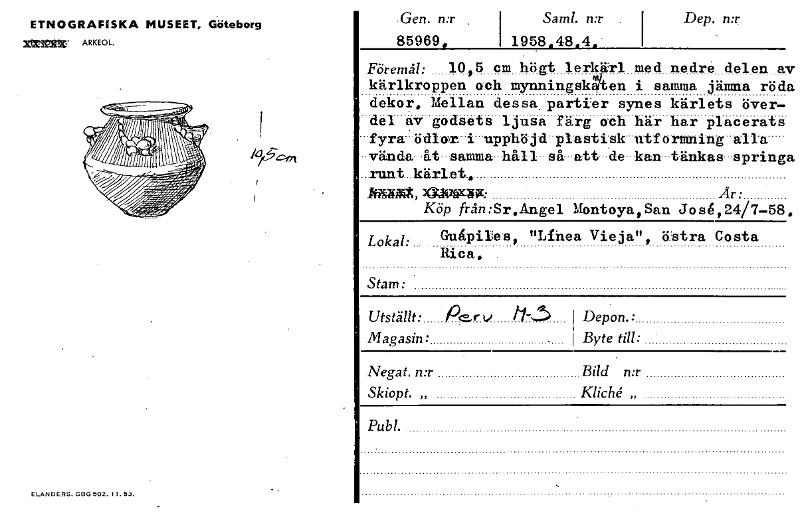 ETNOGRAFISKA MUSEET, Göteborg
ARKEOL.
10,5 cm
ELANDERS. GBG 502. 11.53.
Gen. n:r Saml. n:r Dep. n:r
85969. 1958.48.4.
Föremål: 10,5 cm högt lerkärl med nedre delen av
kärlkroppen och mynningskanten i samma jämna röda
dekor. Mellan dessa partier synes kärlets över-
del av godsets ljusa färg och här har placerats
fyra ödlor i upphöjd plastisk utformning alla
vända åt samma håll så att de kan tänkas springa
runt kärlet.
År:
Köp från: Sr.Angel Montoya,San José,24/7-58.
Lokal: Guápiles, "Línea Vieja", östra Costa
Rica.
Stam:
Utställt: Peru M-3 Depon.:
Magasin: Byte till:
Negat. n:r Bild n:r
Skiopt. „ Kliché „
Publ.